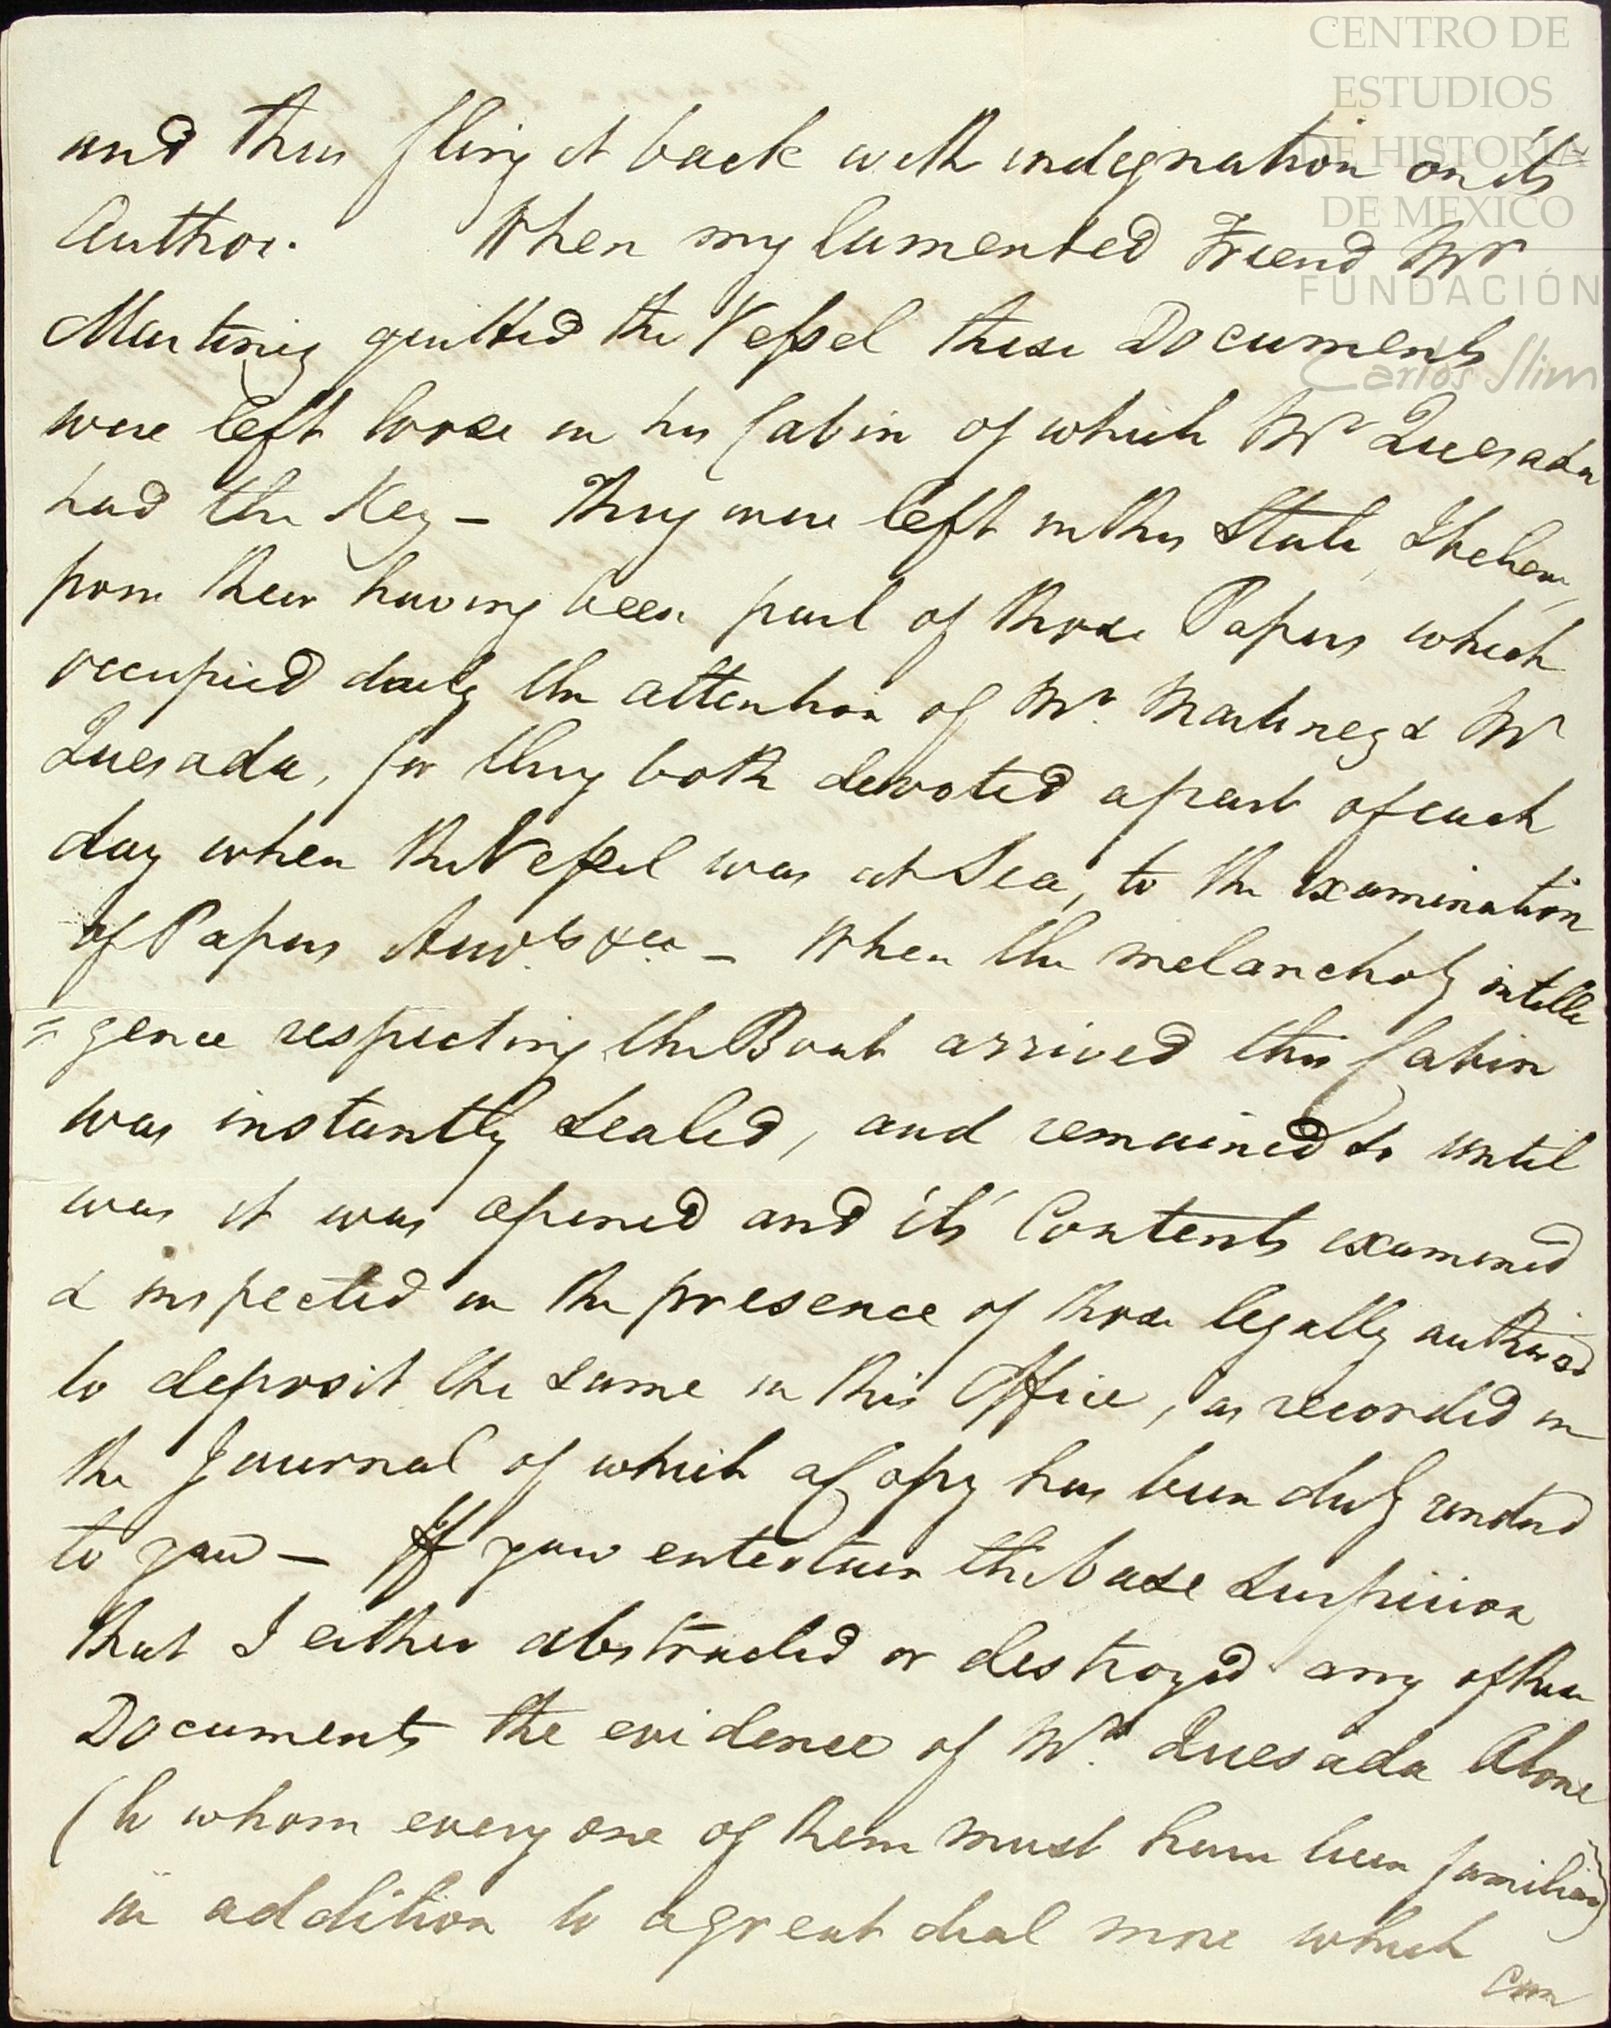 CENTRO DE
ESTUDIOS
DE HISTORIA
DE MEXICO
FUNDACIÓN
Carlos Slim
and thus fling it back with indignation on its
Author. When my lamented Friend Mr
Martinez quitted the Vessel these Documents
were left loose in his Cabin of which Mr Quesada
had the Key — They were left in this State, I believe,
from their having been part of those Papers which
occupied daily the attention of Mr. Martinez & Mr
Quesada, for they both devoted a part of each
day when the Vessel was at Sea, to the examination
of Papers Accts &ca — When the melancholy intelli
= gence respecting the Boat arrived this Cabin
was instantly sealed, and remained so until
was it was opened and its' Contents examined
& inspected in the presence of those legally authorized
to deposit the same in this Office, as recorded in
the Journal of which a Copy has been duly rendered
to you — If you entertain the base suspicion
that I either abstracted or destroyed any of these
Documents the evidence of Mr. Quesada Alone
(to whom every one of them must have been familiar)
in addition to a great deal more which
can